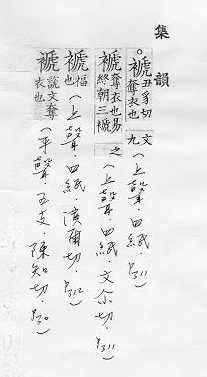 集韻
。褫丑豸切奪衣也文九(上聲．四紙．P311)
褫奪衣也易終朝三褫之(上聲．四紙．文尒切．P311)
褫福也(上聲．四紙．演爾切．P312)
褫說文奪衣也(平聲．五支．陳知切．P30)